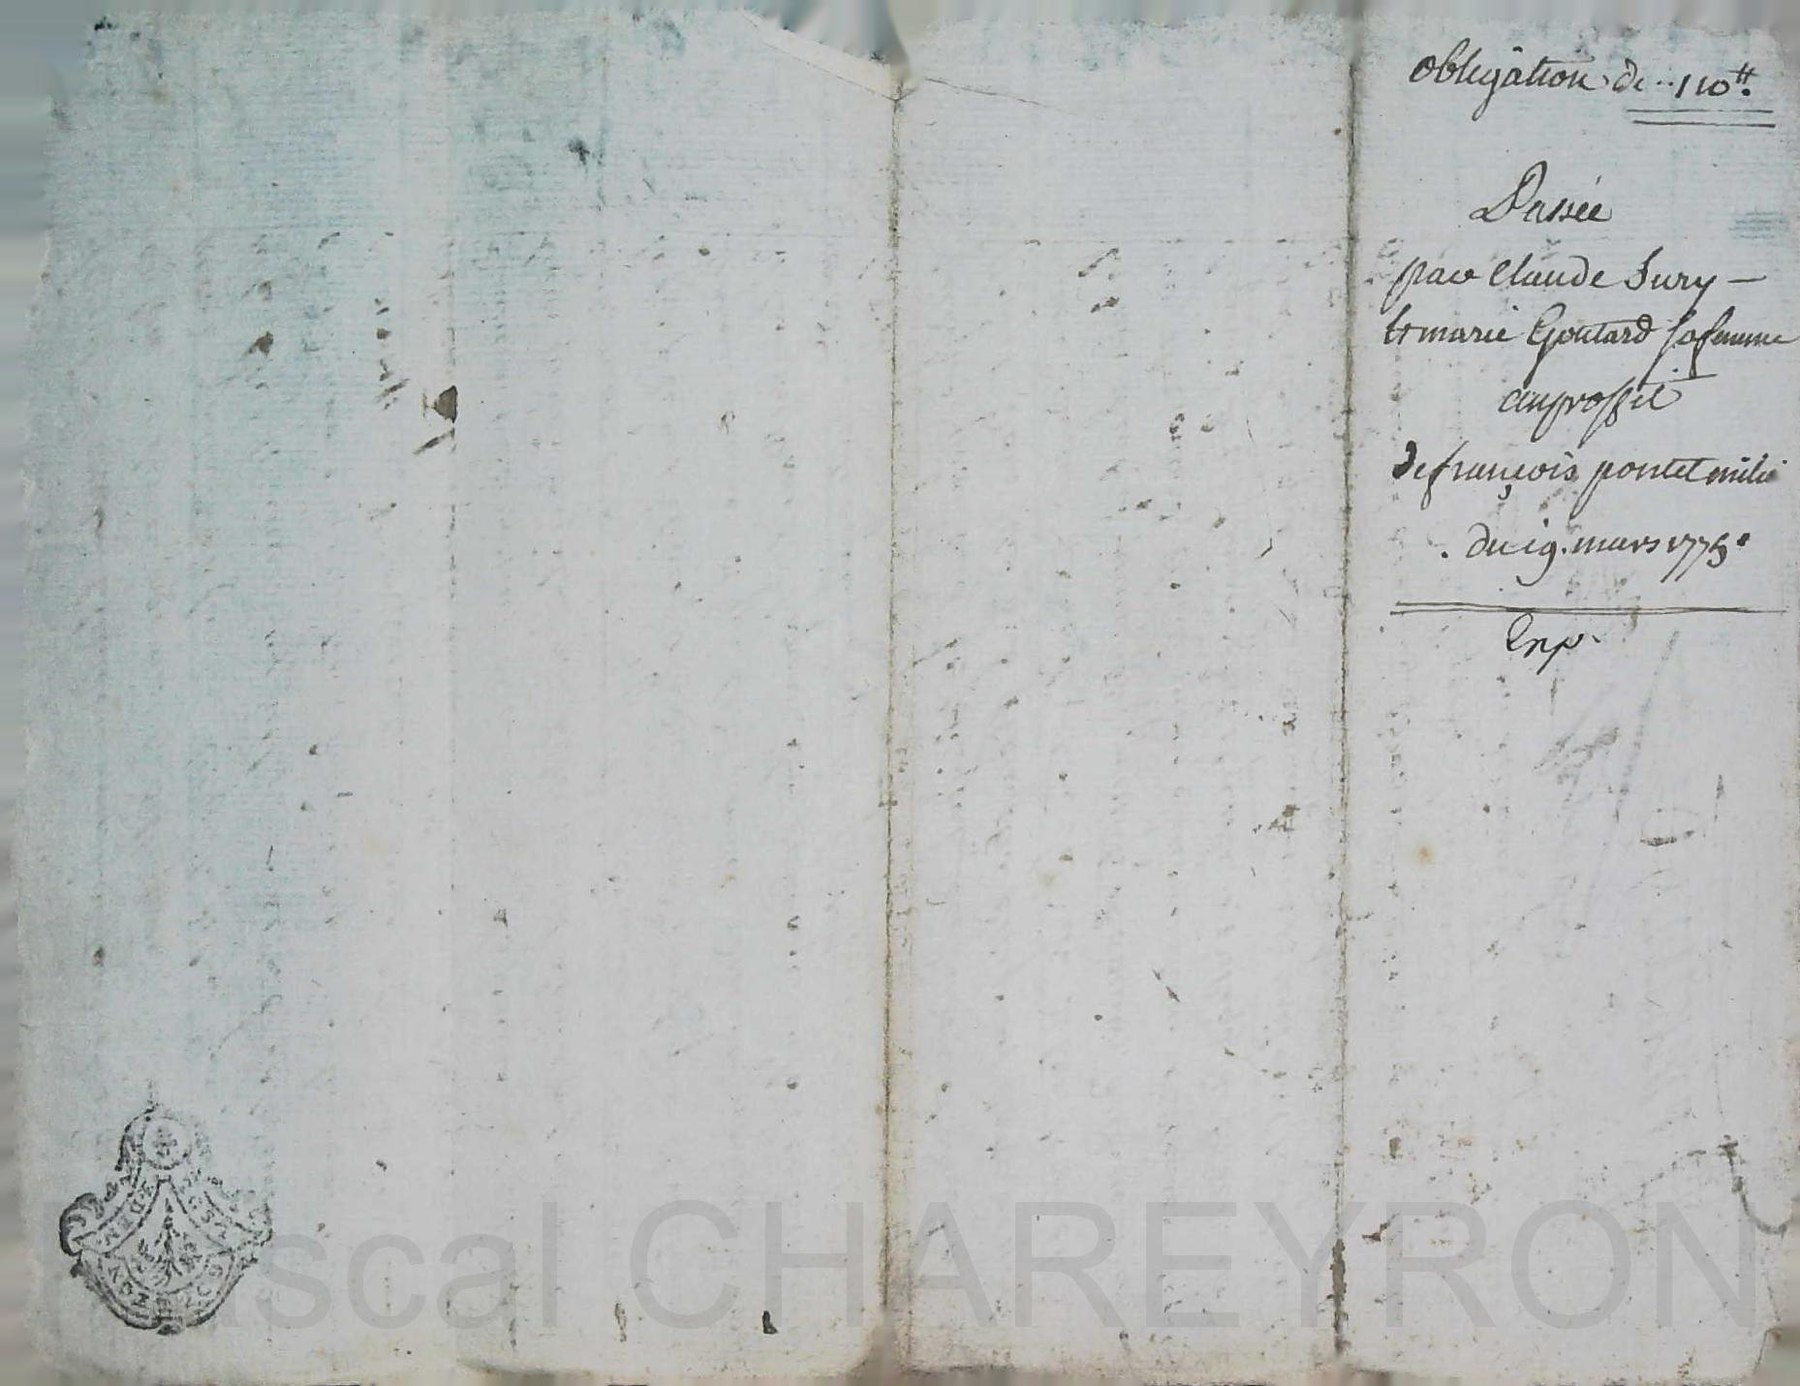 Obligation de 110 tt.
Passée
par Claude Sury –
et marie Goutard sa femme
au proffit
de françois pontet
du 19. mars 1775.
Exp.
scal CHAREYRON